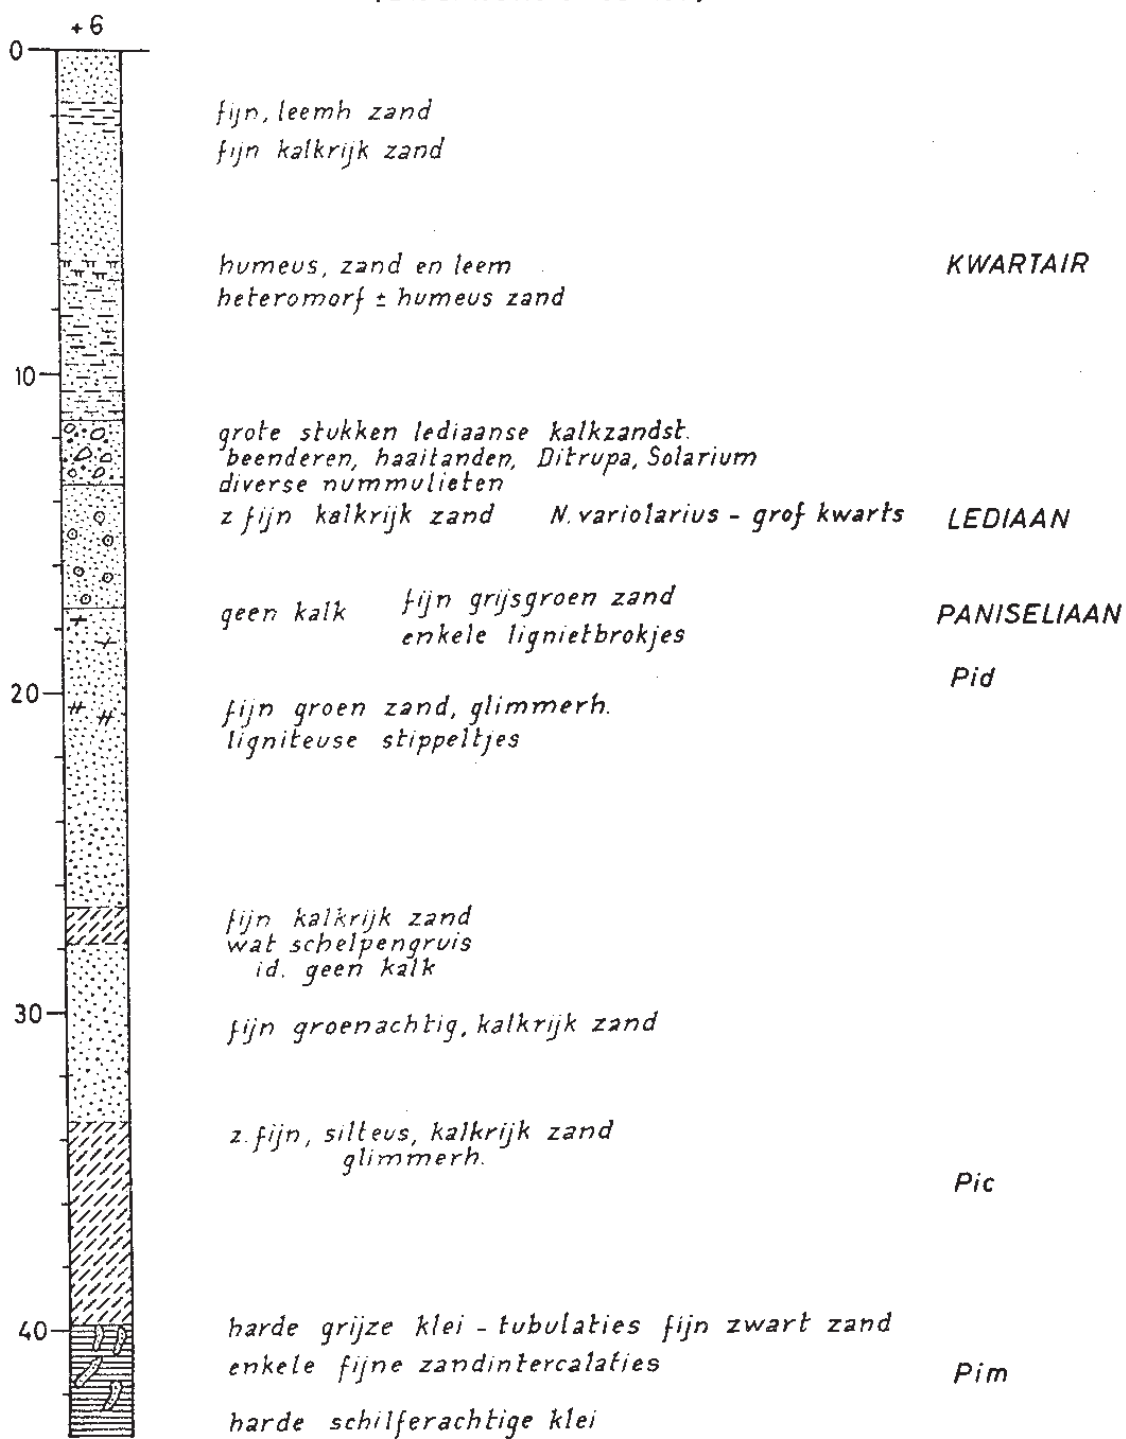 +6
0
fijn, leemh zand
fijn kalkrijk zand
humeus, zand en leem KWARTAIR
heteromorf ± humeus zand
10
grote stukken lediaanse kalkzandst.
beenderen, haaitanden, Ditrupa, Solarium
diverse nummulieten
z fijn kalkrijk zand N. variolarius - grof kwarts LEDIAAN
geen kalk fijn grijsgroen zand PANISELIAAN
enkele lignietbrokjes
Pid
20
fijn groen zand, glimmerh.
ligniteuse stippeltjes
fijn kalkrijk zand
wat schelpengruis
id. geen kalk
30
fijn groenachtig, kalkrijk zand
z. fijn, silteus, kalkrijk zand
glimmerh.
Pic
40
harde grijze klei - tubulaties fijn zwart zand
enkele fijne zandintercalaties
Pim
harde schilferachtige klei